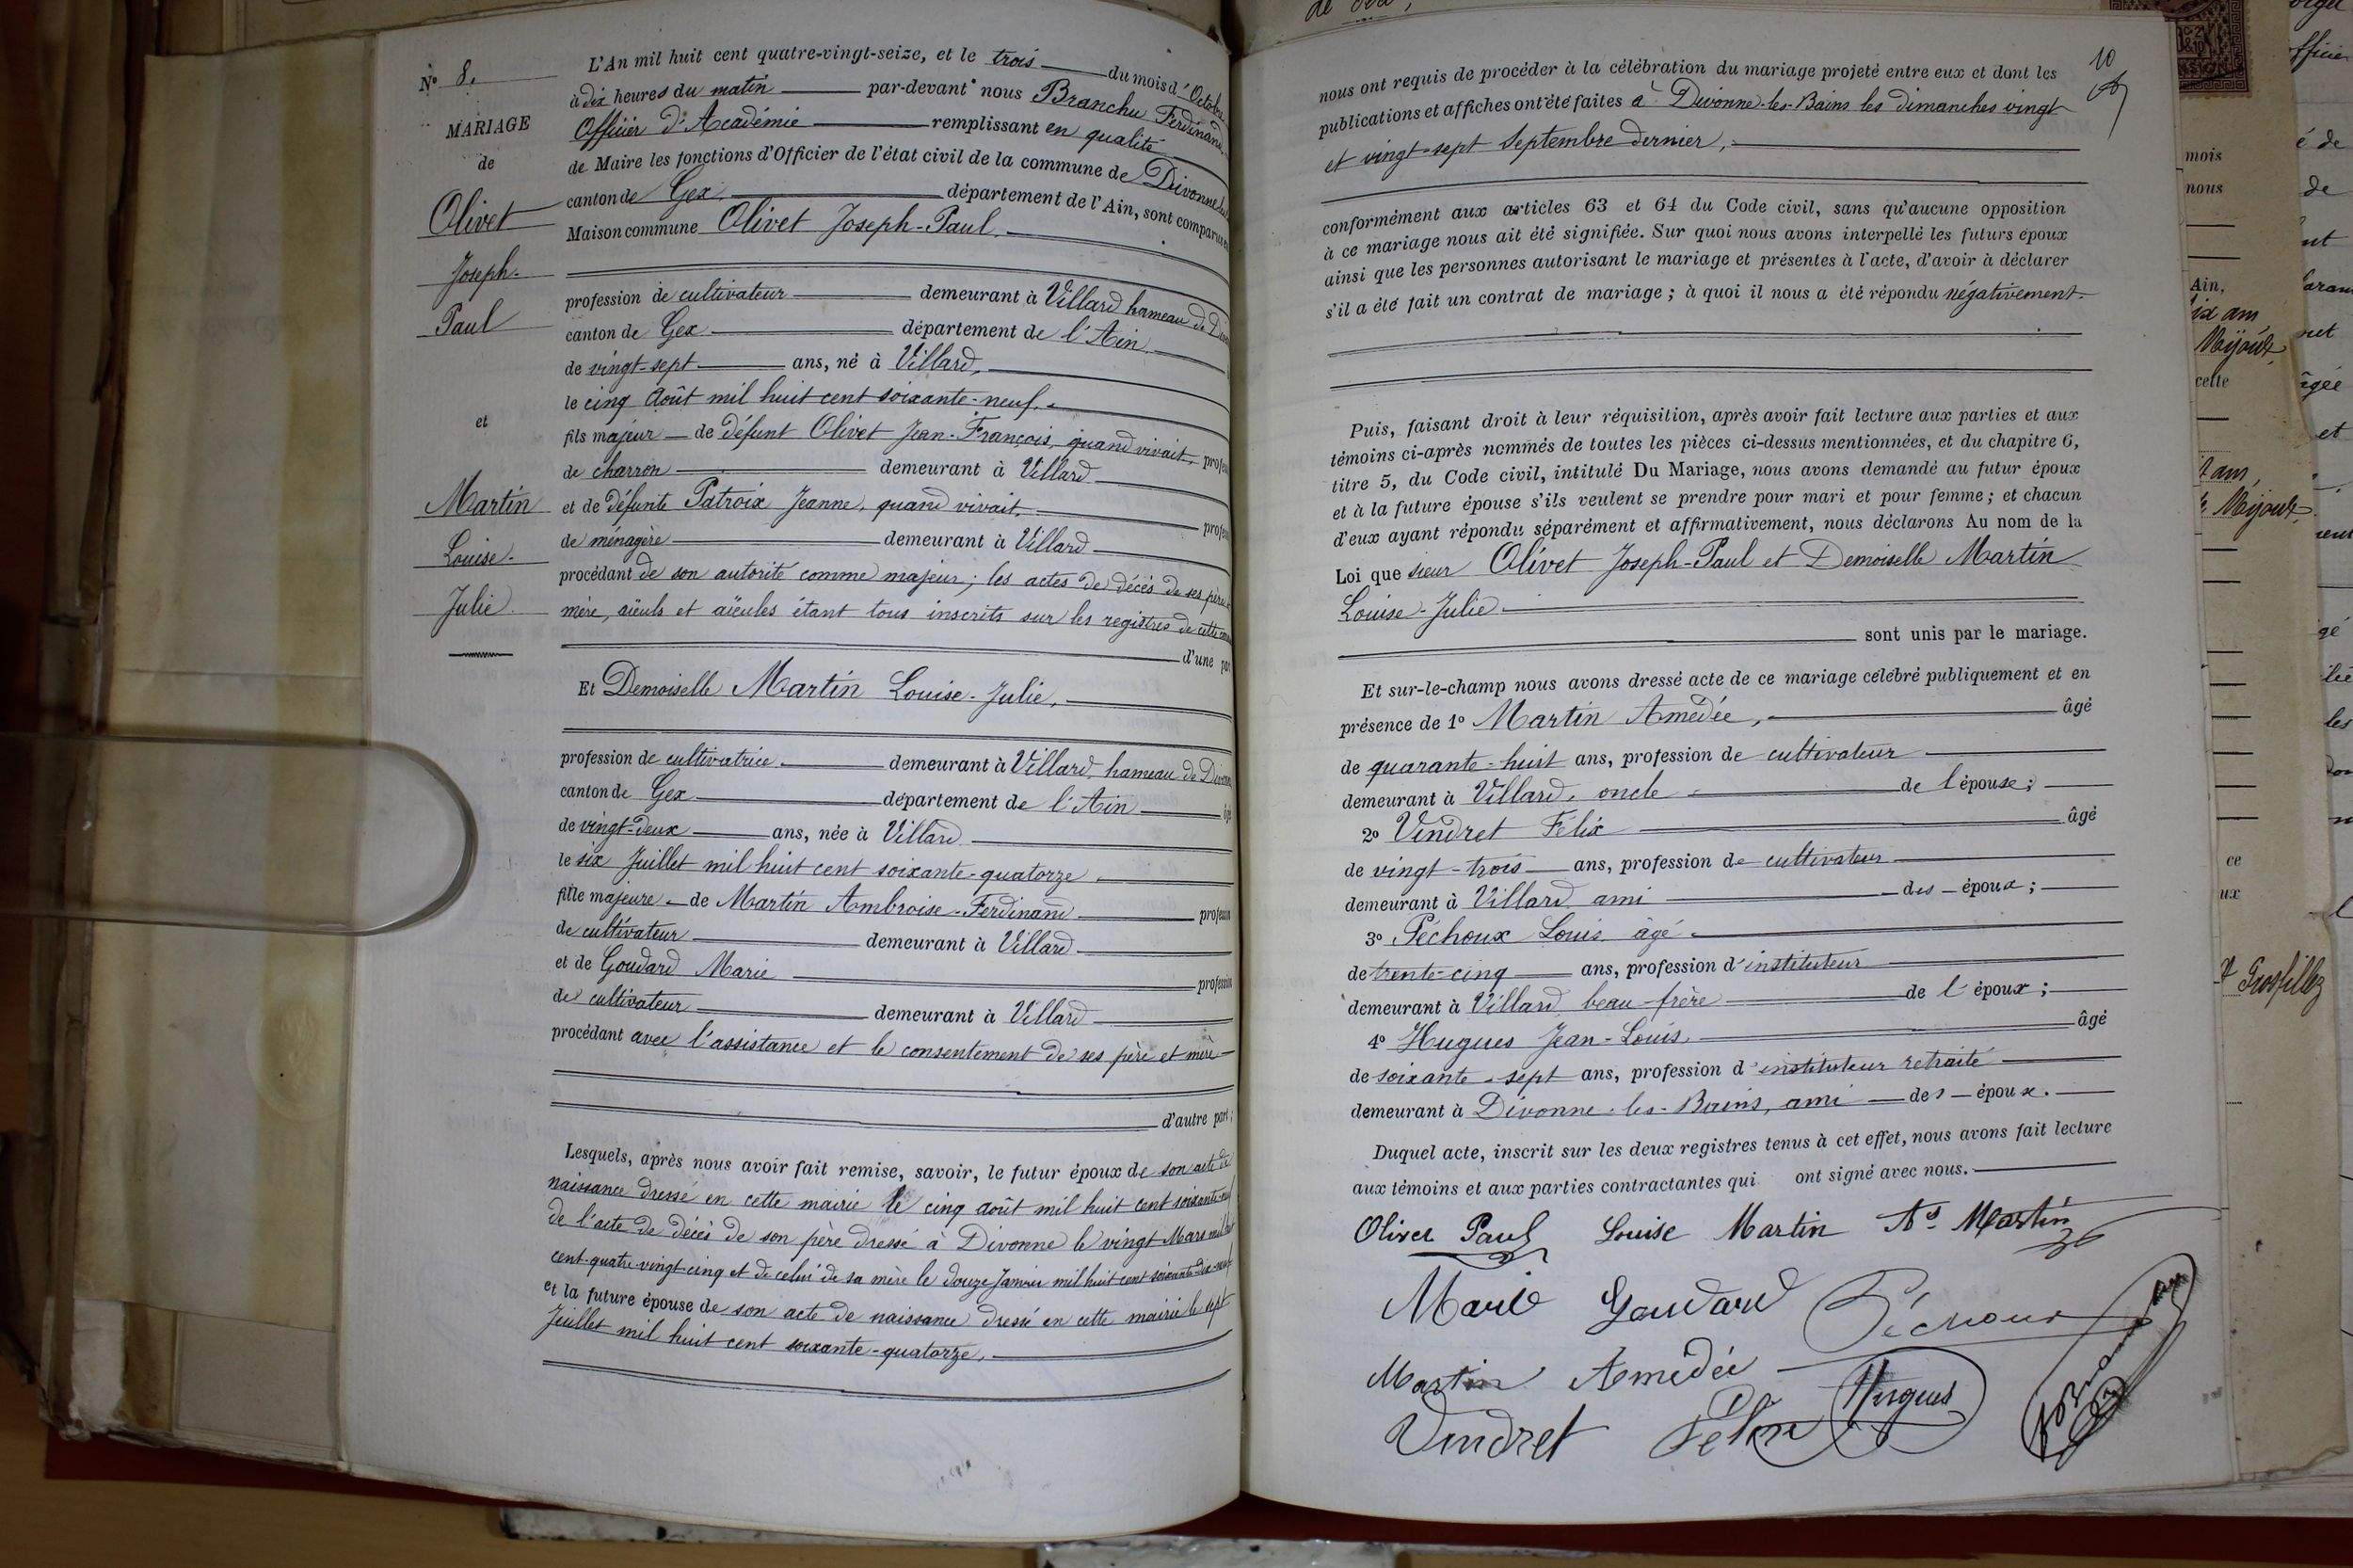 N° 8.
MARIAGE
de
Olivet
Joseph-
Paul
et
Martin
Louise-
Julie
L'An mil huit cent quatre-vingt-seize, et le trois du mois d'Octobre
à dix heures du matin par-devant nous Branchu Ferdinand,
Officier d'Académie remplissant en qualité
de Maire les fonctions d'Officier de l'état civil de la commune de Divonne
canton de Gex, département de l'Ain, sont comparus
Maison commune Olivet Joseph-Paul,
profession de cultivateur demeurant à Villard hameau de
canton de Gex département de l'Ain
de vingt-sept ans, né à Villard,
le cinq Août mil huit cent soixante-neuf,
fils majeur de défunt Olivet Jean-François, quand vivait,
de charron demeurant à Villard
et de défunte Patroix Jeanne, quand vivait,
de ménagère demeurant à Villard
procédant de son autorité comme majeur; les actes de décès de ses père
mère, aïeuls et aïeules étant tous inscrits sur les registres de cette
d'une
Et Demoiselle Martin Louise-Julie,
profession de cultivatrice demeurant à Villard, hameau de
canton de Gex département de l'Ain
de vingt-deux ans, née à Villard
le six Juillet mil huit cent soixante-quatorze,
fille majeure de Martin Ambroise-Ferdinand profession
de cultivateur demeurant à Villard
et de Goudard Marie profession
de cultivateur demeurant à Villard
procédant avec l'assistance et le consentement de ses père et mère
d'autre part;
Lesquels, après nous avoir fait remise, savoir, le futur époux de son acte de
naissance dressé en cette mairie le cinq août mil huit cent soixante-neuf
de l'acte de décès de son père dressé à Divonne le vingt Mars mil huit
cent-quatre-vingt-cinq et de celui de sa mère le douze Janvier mil huit cent soixante-dix-neuf
et la future épouse de son acte de naissance dressé en cette mairie le sept
Juillet mil huit cent soixante-quatorze,
10
nous ont requis de procéder à la célébration du mariage projeté entre eux et dont les
publications et affiches ont été faites à Divonne-les-Bains les dimanches vingt
et vingt-sept Septembre dernier,
conformément aux articles 63 et 64 du Code civil, sans qu'aucune opposition
à ce mariage nous ait été signifiée. Sur quoi nous avons interpellé les futurs époux
ainsi que les personnes autorisant le mariage et présentes à l'acte, d'avoir à déclarer
s'il a été fait un contrat de mariage; à quoi il nous a été répondu négativement.
Puis, faisant droit à leur réquisition, après avoir fait lecture aux parties et aux
témoins ci-après nommés de toutes les pièces ci-dessus mentionnées, et du chapitre 6,
titre 5, du Code civil, intitulé Du Mariage, nous avons demandé au futur époux
et à la future épouse s'ils veulent se prendre pour mari et pour femme; et chacun
d'eux ayant répondu séparément et affirmativement, nous déclarons Au nom de la
Loi que sieur Olivet Joseph-Paul et Demoiselle Martin
Louise-Julie
sont unis par le mariage.
Et sur-le-champ nous avons dressé acte de ce mariage célébré publiquement et en
présence de 1° Martin Amédée, âgé
de quarante-huit ans, profession de cultivateur
demeurant à Villard, oncle de l'épouse;
2° Vindret Félix âgé
de vingt-trois ans, profession de cultivateur
demeurant à Villard ami des époux;
3° Péchoux Louis âgé
de trente-cinq ans, profession d'instituteur
demeurant à Villard beau-frère de l'époux;
4° Hugues Jean-Louis, âgé
de soixante-sept ans, profession d'instituteur retraité
demeurant à Divonne-les-Bains, ami des époux.
Duquel acte, inscrit sur les deux registres tenus à cet effet, nous avons fait lecture
aux témoins et aux parties contractantes qui ont signé avec nous.
Olivet Paul Louise Martin As Martin
Marie Goudard Péchoux
Martin Amédée Hugues
Vindret Félix
mois
nous
Ain,
Mijoux
cette
Mijoux
ce
ux